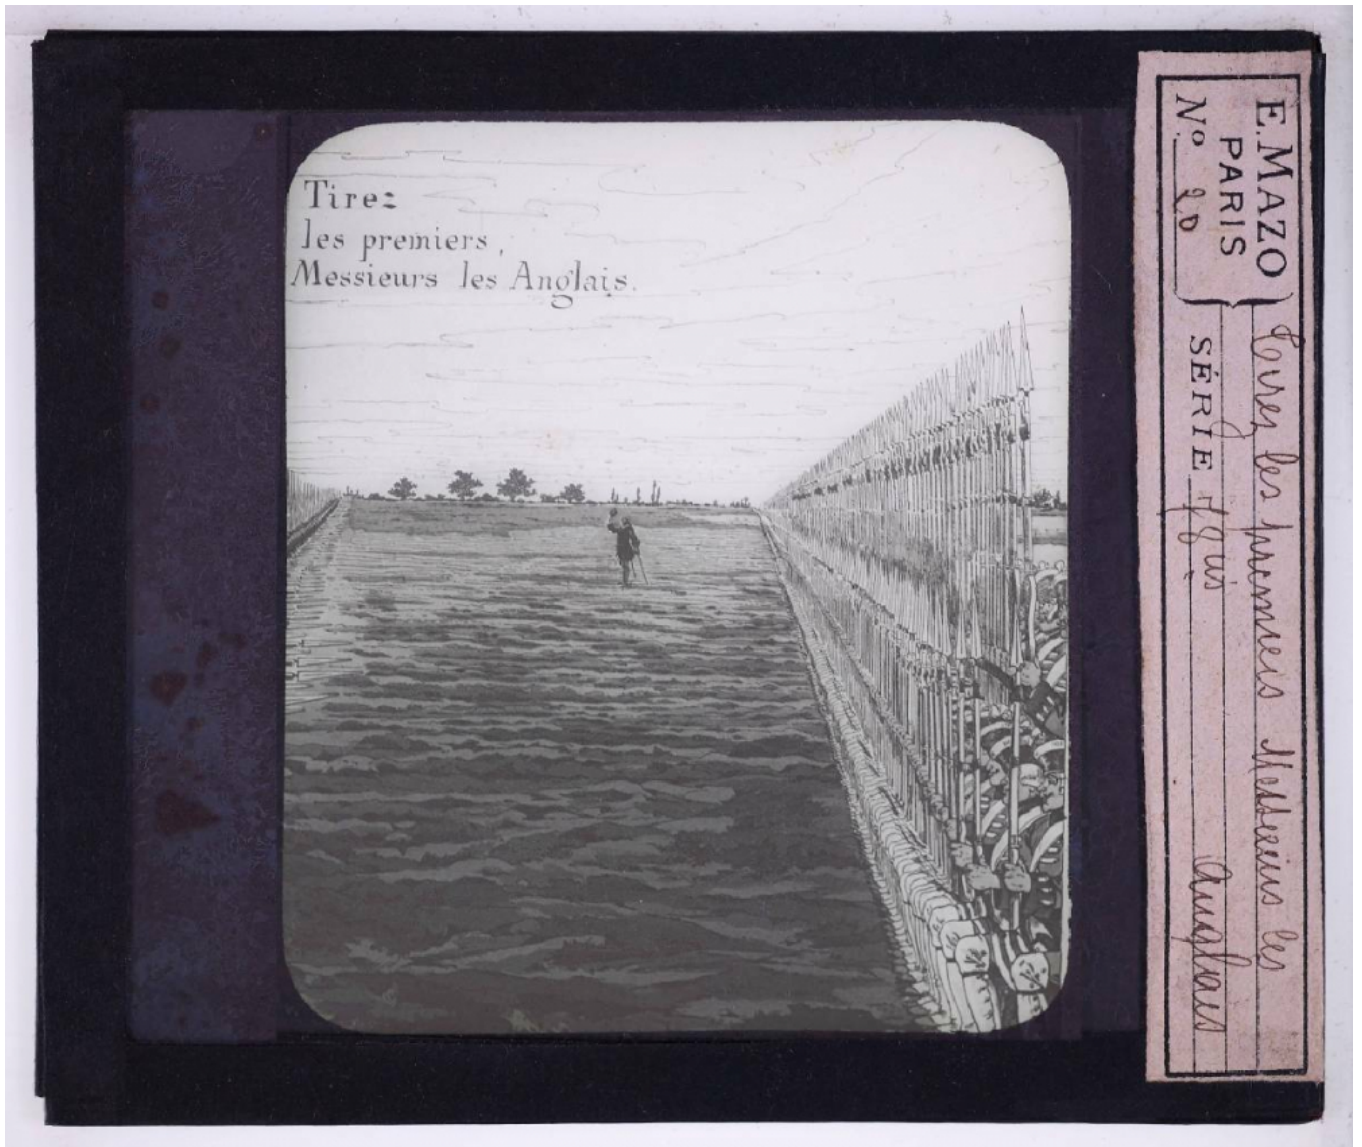 Tirez
les premiers,
Messieurs les Anglais.
E. MAZO
PARIS
Nº 20
SÉRIE 78 bis
Tirez les premiers Messieurs les
Anglais